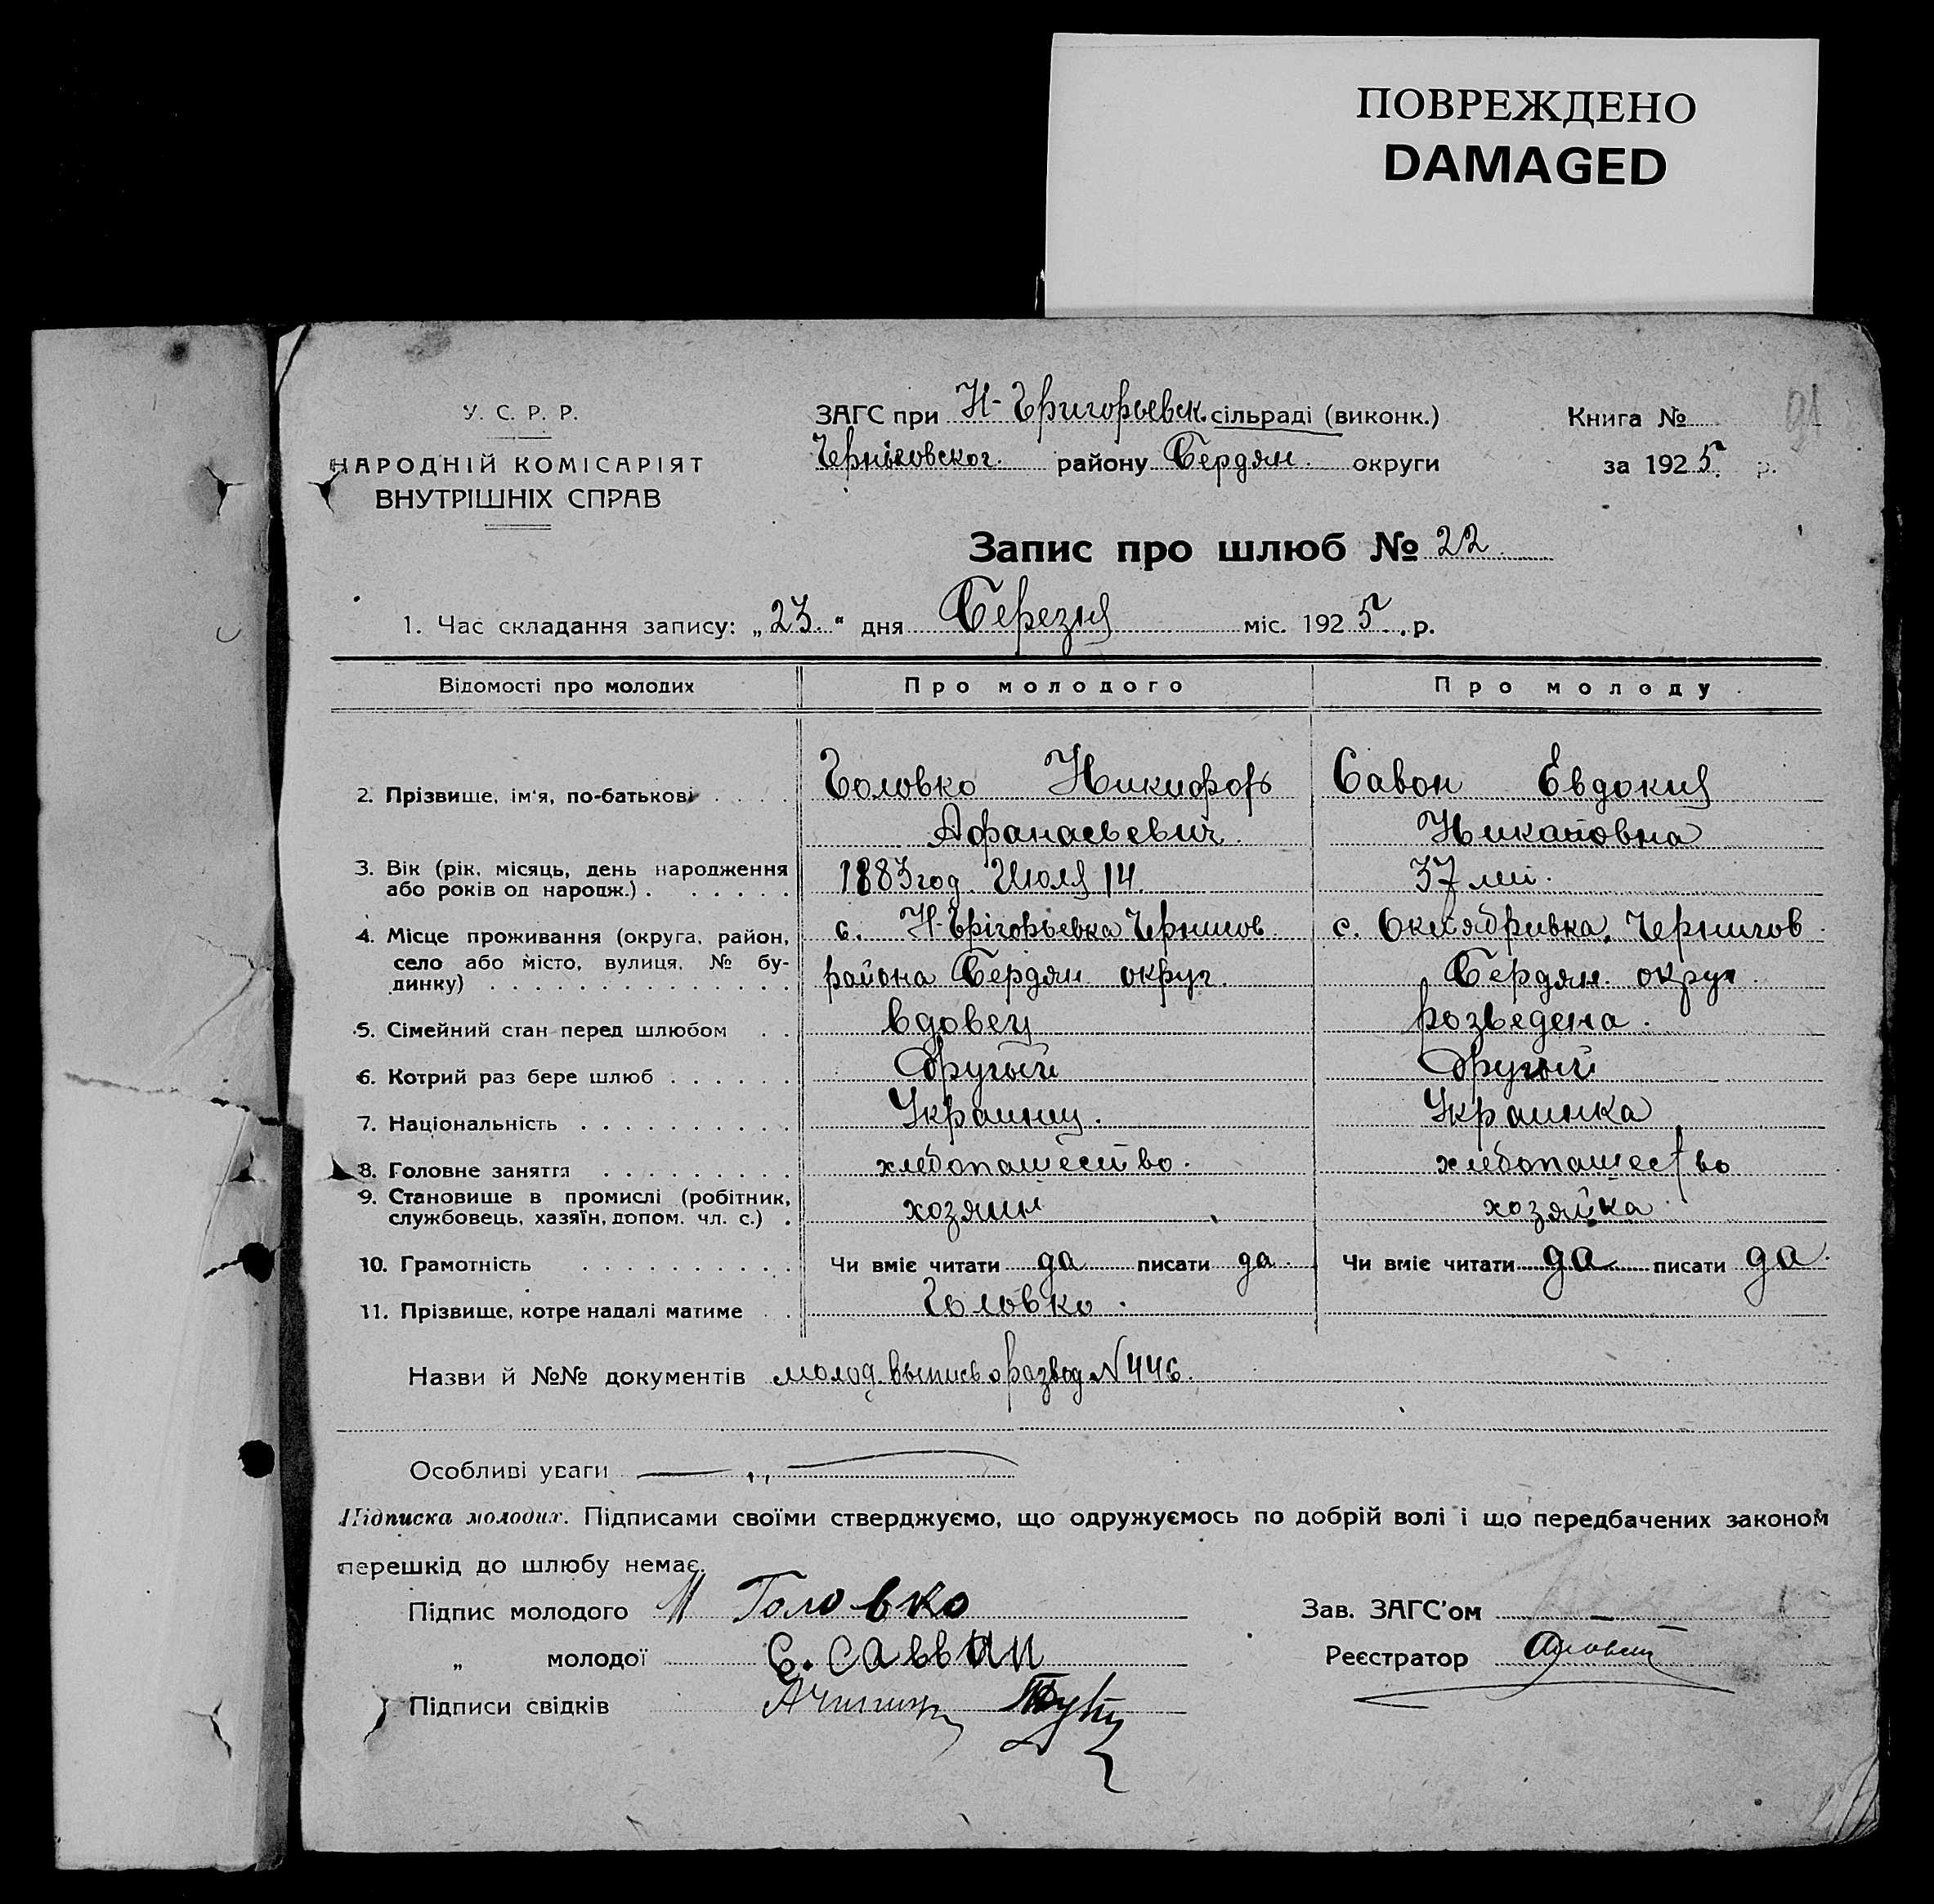 ПОВРЕЖДЕНО
DAMAGED
У. С. Р. Р.
НАРОДНІЙ КОМІСАРІЯТ
ВНУТРІШНІХ СПРАВ
ЗАГС при Н-Григорьевск. сільраді (виконк.)
Черніговског. району Бердян. округи
Книга № 91
за 1925 р.
Запис про шлюб № 22
1. Час складання запису: „23." дня Березня міс. 1925 р.
Відомості про молодих Про молодого Про молоду
2. Прізвище, ім'я, по-батькові Головко Никифор Савон Евдокия
Афанасьевич
3. Вік (рік, місяць, день народження 1883 год Июля 14 37 лет.
або років од народж.)
4. Місце проживання (округа, район, с. Н-Грігорьевка Чернигов. с. Октябривка, Чернигов.
село або місто, вулиця, № бу- района Бердян округ. Бердян. округ.
динку)
5. Сімейний стан перед шлюбом вдовец розведена.
6. Котрий раз бере шлюб другий другий
7. Національність Украинец. Украинка
8. Головне заняття хлебопашество. хлебопашество
9. Становище в промислі (робітник, хозяин хозяйка
службовець, хазяїн, допом. чл. с.)
10. Грамотність Чи вміє читати да писати да. Чи вміє читати да писати да.
11. Прізвище, котре надалі матиме Головко.
Назви й №№ документів молод. выпись о развод N 446.
Особливі уваги — „ —
Підписка молодих. Підписами своїми стверджуємо, що одружуємось по добрій волі і що передбачених законом
перешкід до шлюбу немає.
Підпис молодого Головко Зав. ЗАГС'ом
„ молодої Е. Савван Реєстратор
Підписи свідків